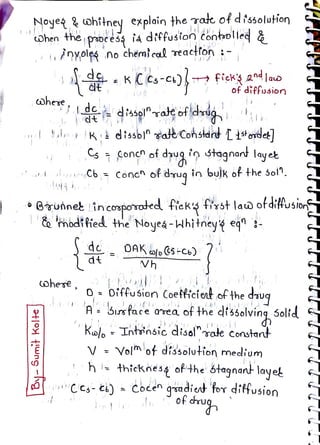 Noyes & Whitney explain the rate of dissolution
when the process is diffusion controlled &
involes no chemical reaction :-
{ dc/dt = K (Cs-Cb) } → fick's 2nd law
of diffusion
where,
dc/dt = dissolⁿ rate of drug
K = dissolⁿ rate Constant [1st order]
Cs = Concⁿ of drug in stagnant layer
Cb = Concⁿ of drug in bulk of the solⁿ.
• Brunner incorporated fick's first law of diffusion
& modified the Noyes-Whitney's eqⁿ :-
{ dc/dt = DAK w/o (Cs-Cb) / Vh }
where,
D = Diffusion Coefficient of the drug
A = Surface area of the dissolving solid
Kw/o = Intrinsic disolⁿ rate constant
V = Volᵐ of dissolution medium
h = thickness of the stagnant layer
(Cs-Cb) = Concⁿ gradient for diffusion
of drug
By - Sumit Kolte